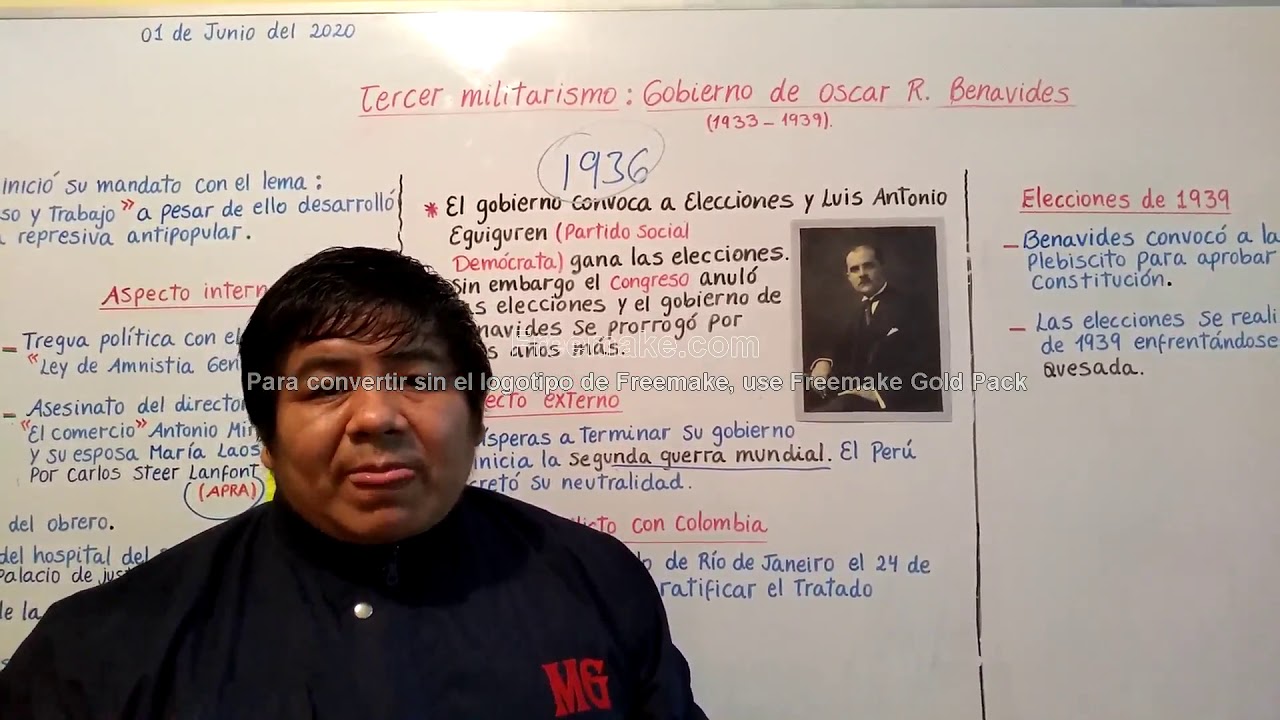 01 de Junio del 2020
Tercer militarismo: Gobierno de Oscar R. Benavides
(1933 - 1939).
inició su mandato con el lema:
so y Trabajo" a pesar de ello desarrolló
represiva antipopular.
Aspecto intern
- Tregua política con el
"Ley de Amnistia Gen
- Asesinato del director
"El comercio" Antonio Mir
y su esposa María Laos
Por Carlos Steer Lanfont
(APRA)
del obrero.
del hospital del
Palacio de jus
de la
1936
* El gobierno convoca a Elecciones y Luis Antonio
Eguiguren (Partido Social
Demócrata) gana las elecciones.
Sin embargo el Congreso anuló
as elecciones y el gobierno de
navides se prorrogó por
s años más.
ecto externo
ísperas a Terminar su gobierno
inicia la segunda guerra mundial. El Perú
cretó su neutralidad.
licto con Colombia
o de Río de Janeiro el 24 de
ratificar el Tratado
Elecciones de 1939
- Benavides convocó a la
Plebiscito para aprobar
Constitución.
- Las elecciones se reali
de 1939 enfrentándose
Quesada.
Freemake.com
Para convertir sin el logotipo de Freemake, use Freemake Gold Pack
MG